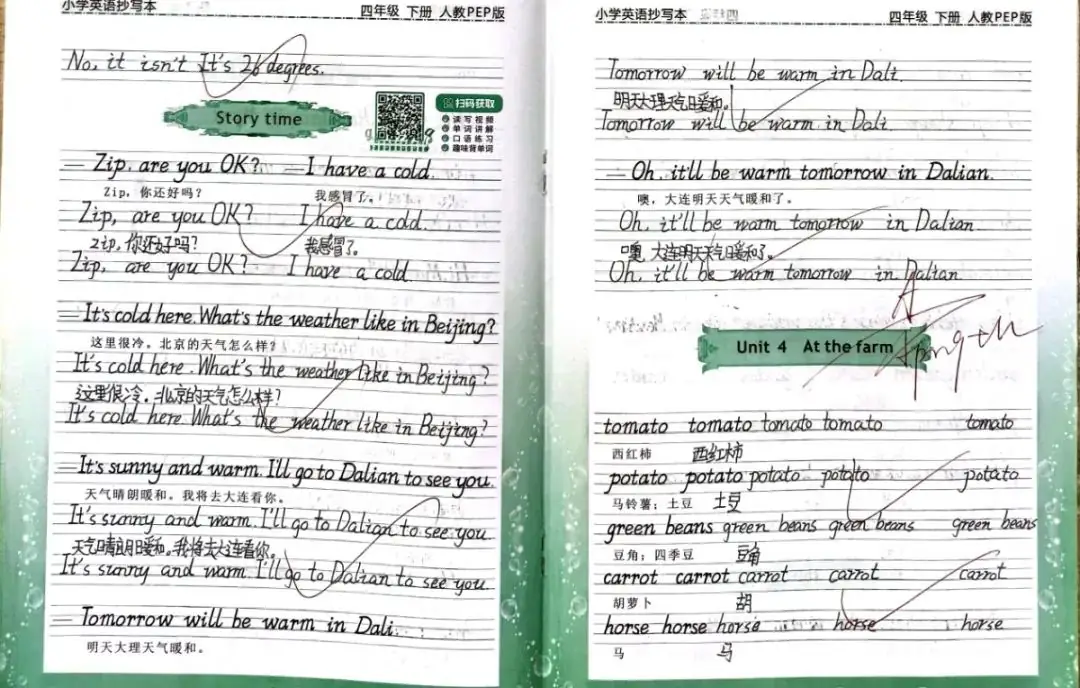 小学英语抄写本
四年级 下册 人教PEP版
No, it isn't It's 26 degrees.
Story time
扫码获取
读写视频
单词讲解
口语练习
趣味背单词
— Zip, are you OK? — I have a cold.
Zip, 你还好吗? 我感冒了。
Zip, are you OK? I have a cold.
Zip, 你还好吗? 我感冒了。
Zip, are you OK? I have a cold
— It's cold here. What's the weather like in Beijing?
这里很冷。北京的天气怎么样?
It's cold here. What's the weather like in Beijing?
这里很冷。北京的天气怎么样?
It's cold here. What's the weather like in Beijing?
— It's sunny and warm. I'll go to Dalian to see you.
天气晴朗暖和。我将去大连看你。
It's sunny and warm. I'll go to Dalian to see you.
天气晴朗暖和。我将去大连看你。
It's sunny and warm. I'll go to Dalian to see you.
— Tomorrow will be warm in Dali.
明天大理天气暖和。
小学英语抄写本
四年级 下册 人教PEP版
Tomorrow will be warm in Dali.
明天大理天气暖和。
Tomorrow will be warm in Dali.
— Oh, it'll be warm tomorrow in Dalian.
噢，大连明天天气暖和了。
Oh, it'll be warm tomorrow in Dalian.
噢，大连明天天气暖和了。
Oh, it'll be warm tomorrow in Dalian.
A
Unit 4 At the farm
tomato tomato tomato tomato tomato
西红柿 西红柿
potato potato potato potato potato
马铃薯；土豆 土豆
green beans green beans green beans green beans
豆角；四季豆 豆角
carrot carrot carrot carrot carrot
胡萝卜 胡
horse horse horse horse horse
马 马